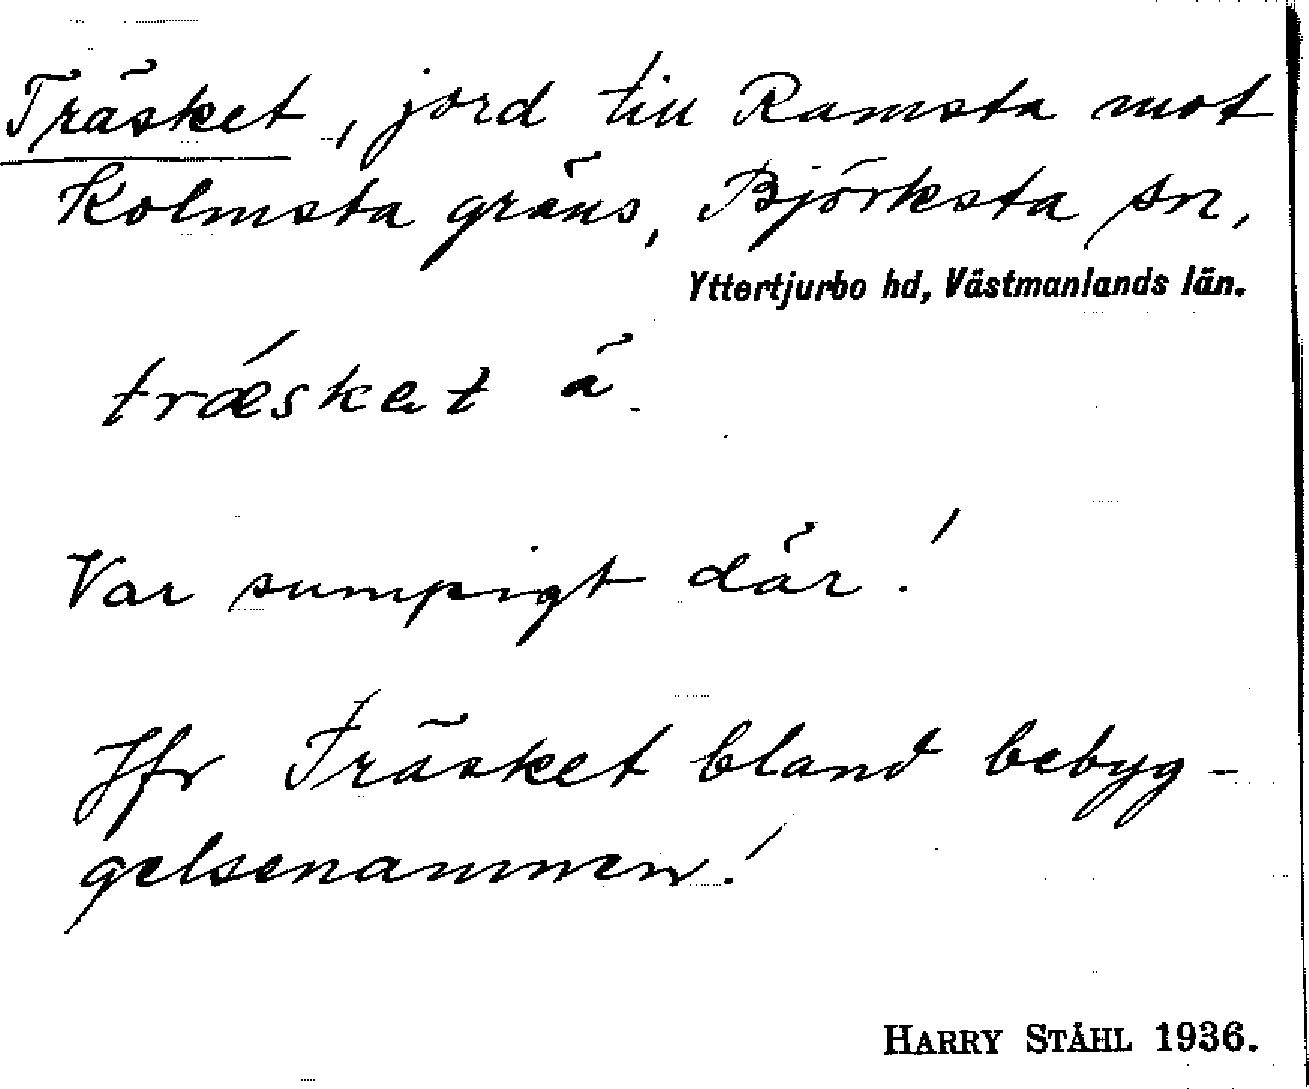 Träsket, jord till Ramsta mot
Kolmsta gräns, Björksta sn,
Yttertjurbo hd, Västmanlands län.
trǽsket ä.
Var sumpigt där!
Jfr Träsket bland bebyg-
gelsenamnen!
HARRY STÅHL 1936.